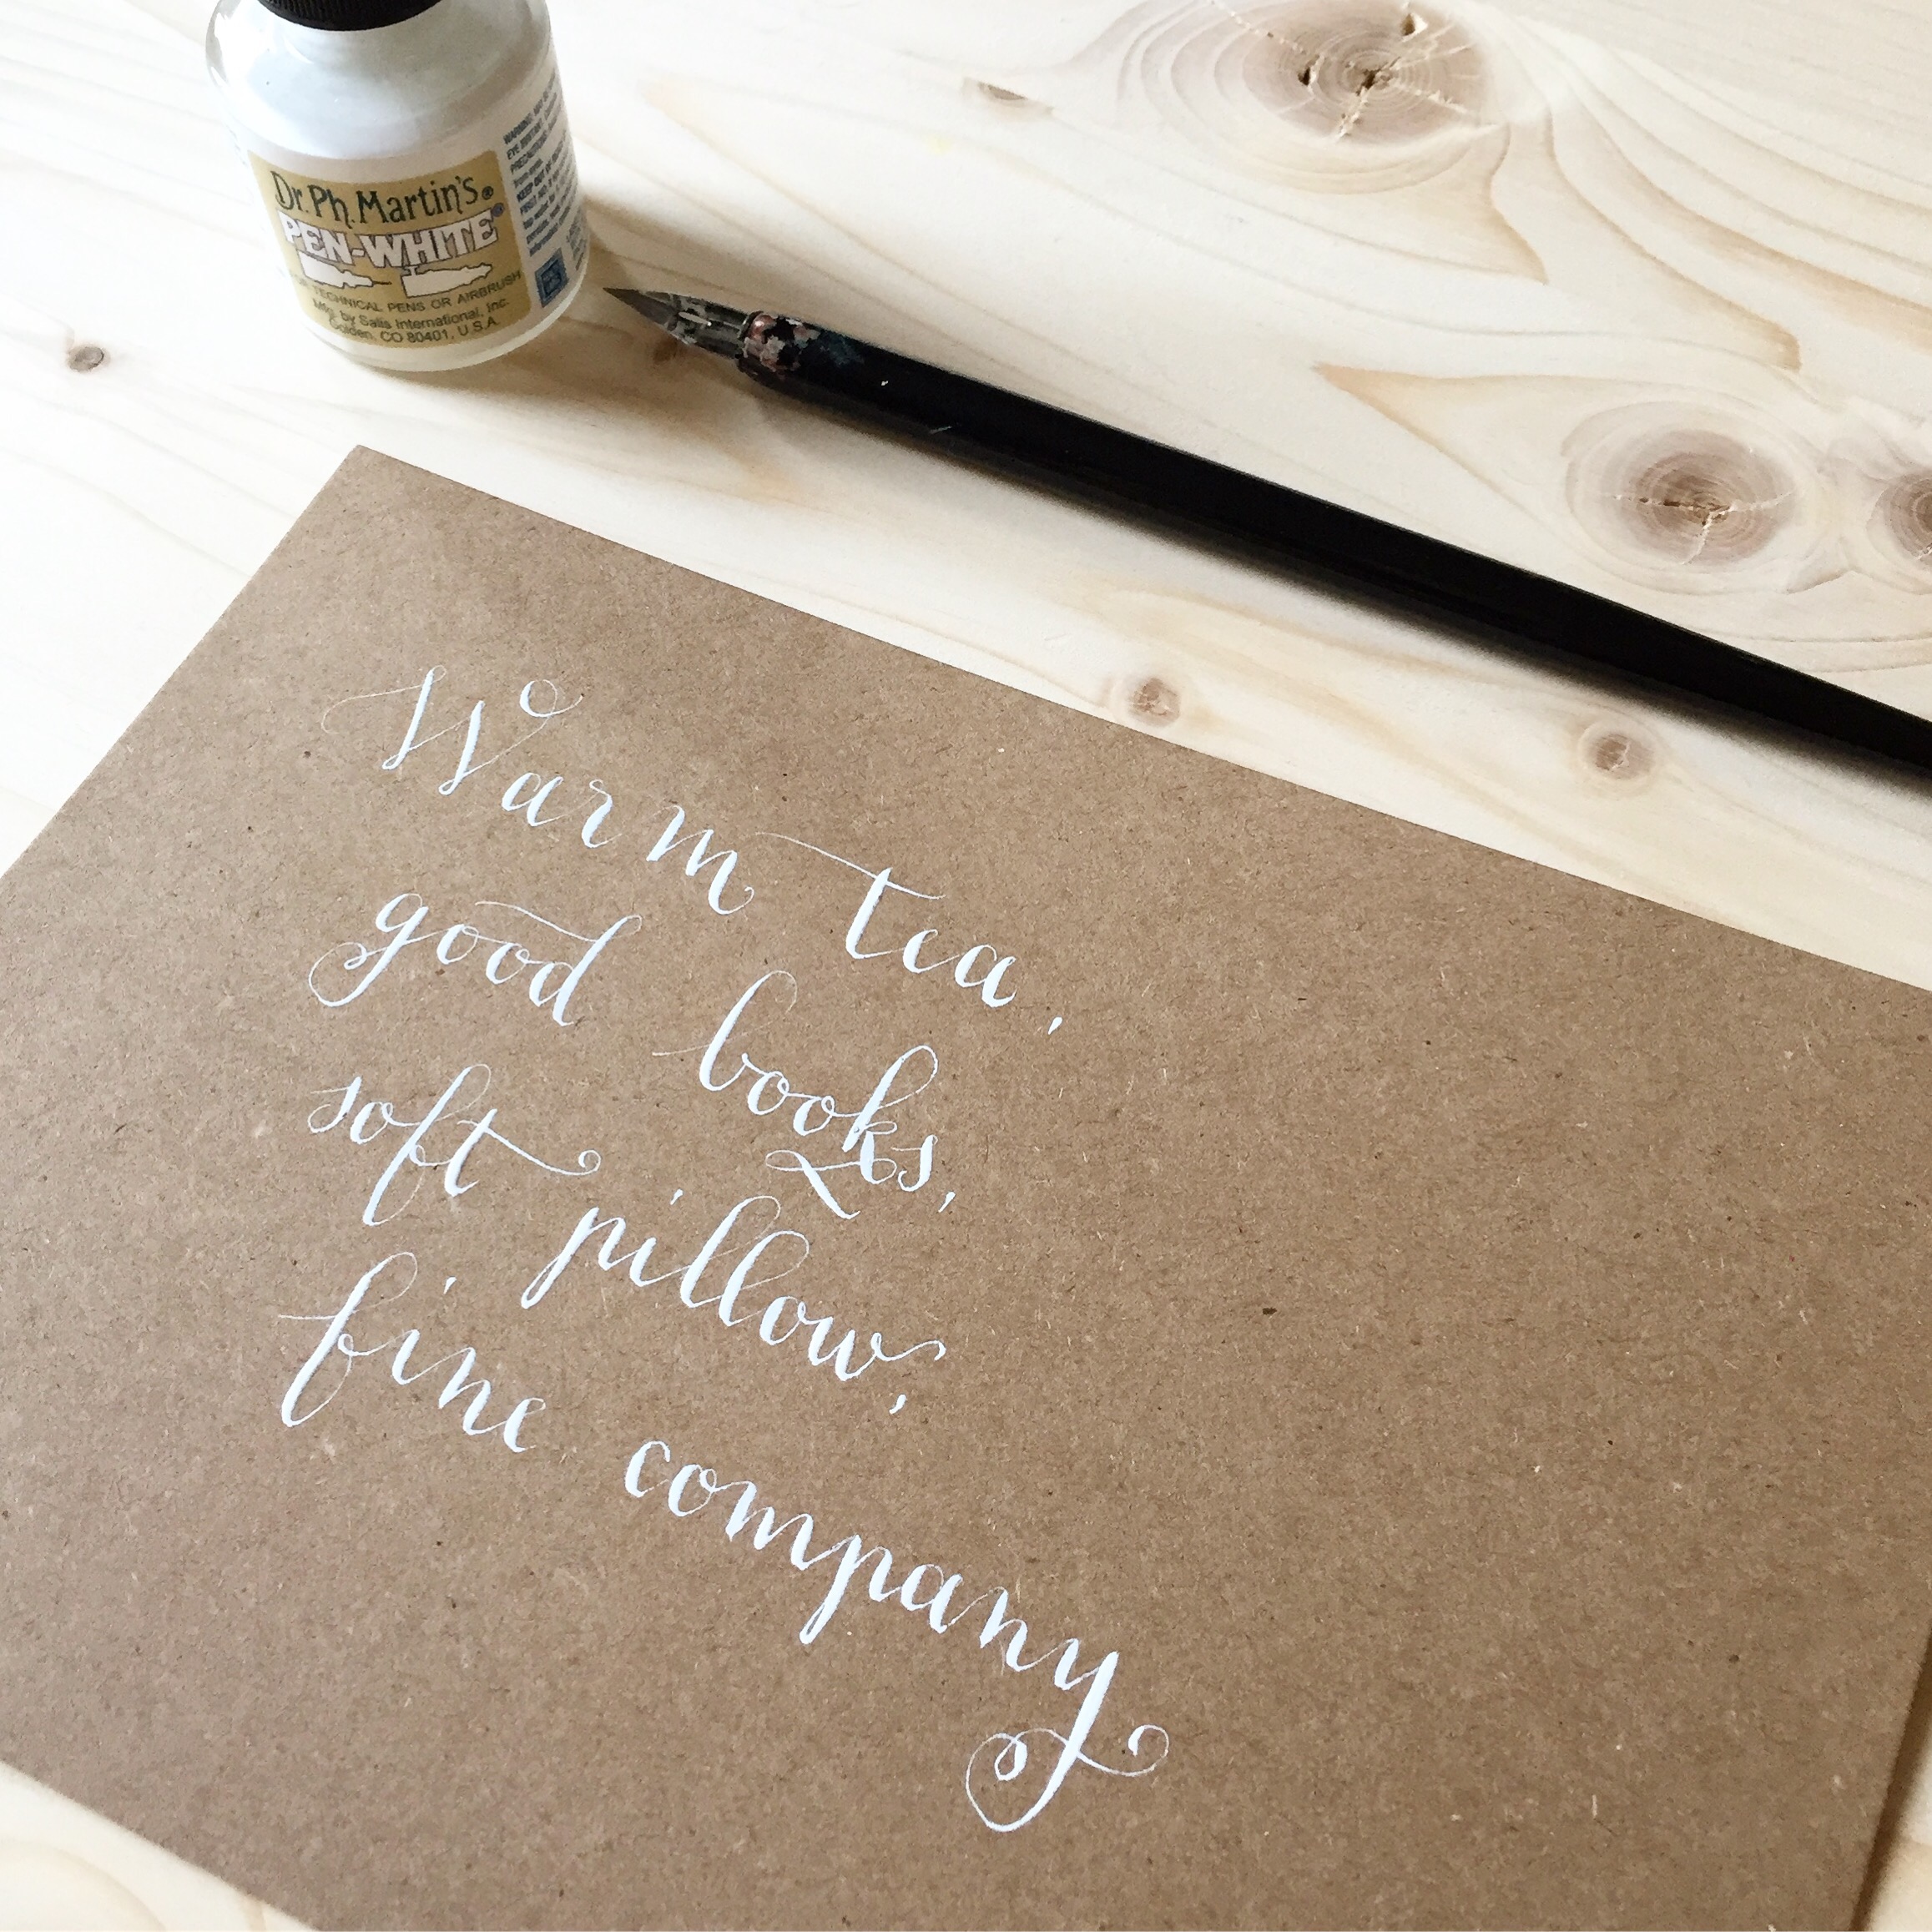 Dr. Ph. Martin's®
PEN-WHITE®
TECHNICAL PENS OR AIRBRUSH
Mfg. by Salis International, Inc.
Golden, CO 80401, U.S.A.
Warm tea,
good books,
soft pillow,
fine company